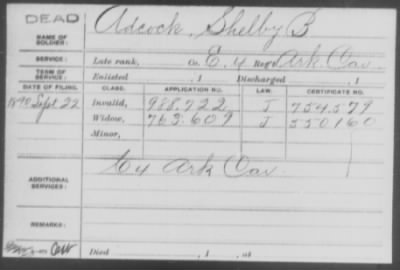 DEAD
NAME OF SOLDIER: Adcock, Shelby B
SERVICE: Late rank, Co. E, 4 Reg't Ark Cav.
TERM OF SERVICE: Enlisted , 1 Discharged , 1
DATE OF FILING. CLASS. APPLICATION NO. LAW. CERTIFICATE NO.
1890 Sept 22 Invalid, 988.722 J 754.579
Widow, 763.609 J 550160
Minor,
ADDITIONAL SERVICES: E 4 Ark Cav
REMARKS:
Died , 1 , at